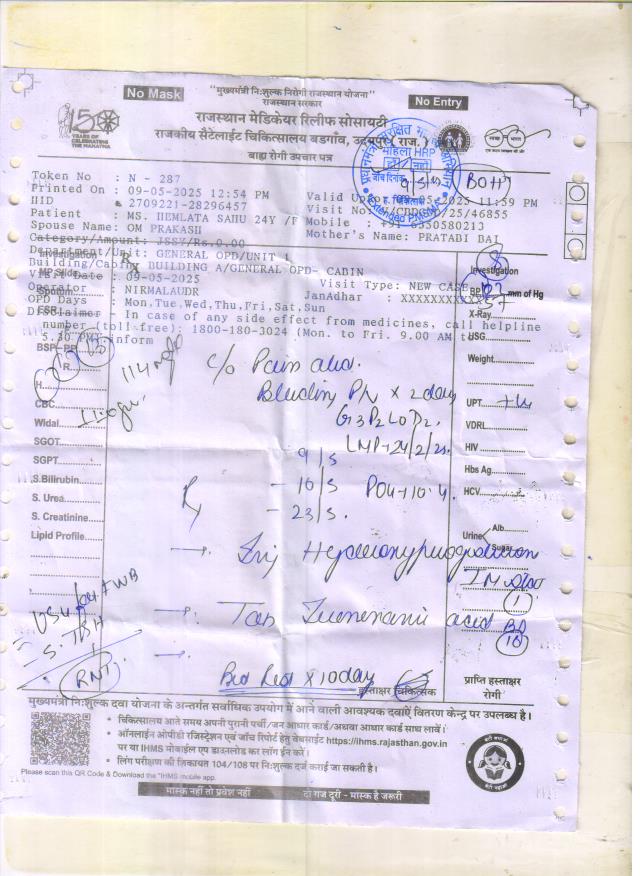 No Mask
"मुख्यमंत्री निःशुल्क निरोगी राजस्थान योजना"
राजस्थान सरकार
No Entry
राजस्थान मेडिकेयर रिलीफ सोसायटी
राजकीय सैटेलाईट चिकित्सालय बड़गाँव, उदयपुर ( राज. )
बाह्य रोगी उपचार पत्र
150
YEARS OF
CELEBRATING
THE MAHATMA
महिला HRP
हाँ / नहीं
जाँच दिनांक
Extended PMSMA
Token No : N - 287
Printed On : 09-05-2025 12:54 PM
HID : 2709221-28296457
Patient : MS. HEMLATA SAHU 24Y /F
Spouse Name: OM PRAKASH
Category/Amount: JSSY/Rs.0.00
Department/Unit: GENERAL OPD/UNIT 1
Building/Cabin: BUILDING A/GENERAL OPD- CABIN
Visit Date : 09-05-2025
Operator : NIRMALAUDR
OPD Days : Mon,Tue,Wed,Thu,Fri,Sat,Sun
Disclaimer - In case of any side effect from medicines, call helpline
number (toll-free): 1800-180-3024 (Mon. to Fri. 9.00 AM to
5.30 PM) inform
11:59 PM
25/46855
Mobile : +91 6350580213
Mother's Name: PRATABI BAI
Visit Type: NEW CASE
JanAdhar : XXXXXXXXXX
MP Slide
Sputum
ESR
H.
CBC
Widal
SGOT
SGPT
S.Bilirubin
S. Urea
S. Creatinine
Lipid Profile
Investigation
BP mm of Hg
X-Ray
USG
Weight
UPT +ve
VDRL
HIV
Hbs Ag.
HCV
Urine
Alb.
Sugar
c/o Pain abd.
Bleeding PV x 2 day
G3P2L0D2
LMP - 24/2/25
9/5
- 16/5
- 23/5.
Inj Hydroxyprogesterone
IM stat
Tab Tranexamic acid BD
10
S. TSH
RNT
Bed Rest x 10 day
हस्ताक्षर चिकित्सक
प्राप्ति हस्ताक्षर
रोगी
मुख्यमंत्री निःशुल्क दवा योजना के अन्तर्गत सर्वाधिक उपयोग में आने वाली आवश्यक दवाऐं वितरण केन्द्र पर उपलब्ध है।
• चिकित्सालय आते समय अपनी पुरानी पर्ची/जन आधार कार्ड/अथवा आधार कार्ड साथ लावें।
• ऑनलाईन ओपीडी रजिस्ट्रेशन एवं जाँच रिपोर्ट हेतु वेबसाईट https://ihms.rajasthan.gov.in
पर या IHMS मोबाईल एप डाउनलोड कर लॉग ईन करें।
• लिंग परीक्षण की शिकायत 104/108 पर निःशुल्क दर्ज कराई जा सकती है।
Please scan this QR Code & Download the "IHMS mobile app.
मास्क नहीं तो प्रवेश नहीं
दो गज दूरी - मास्क है जरूरी